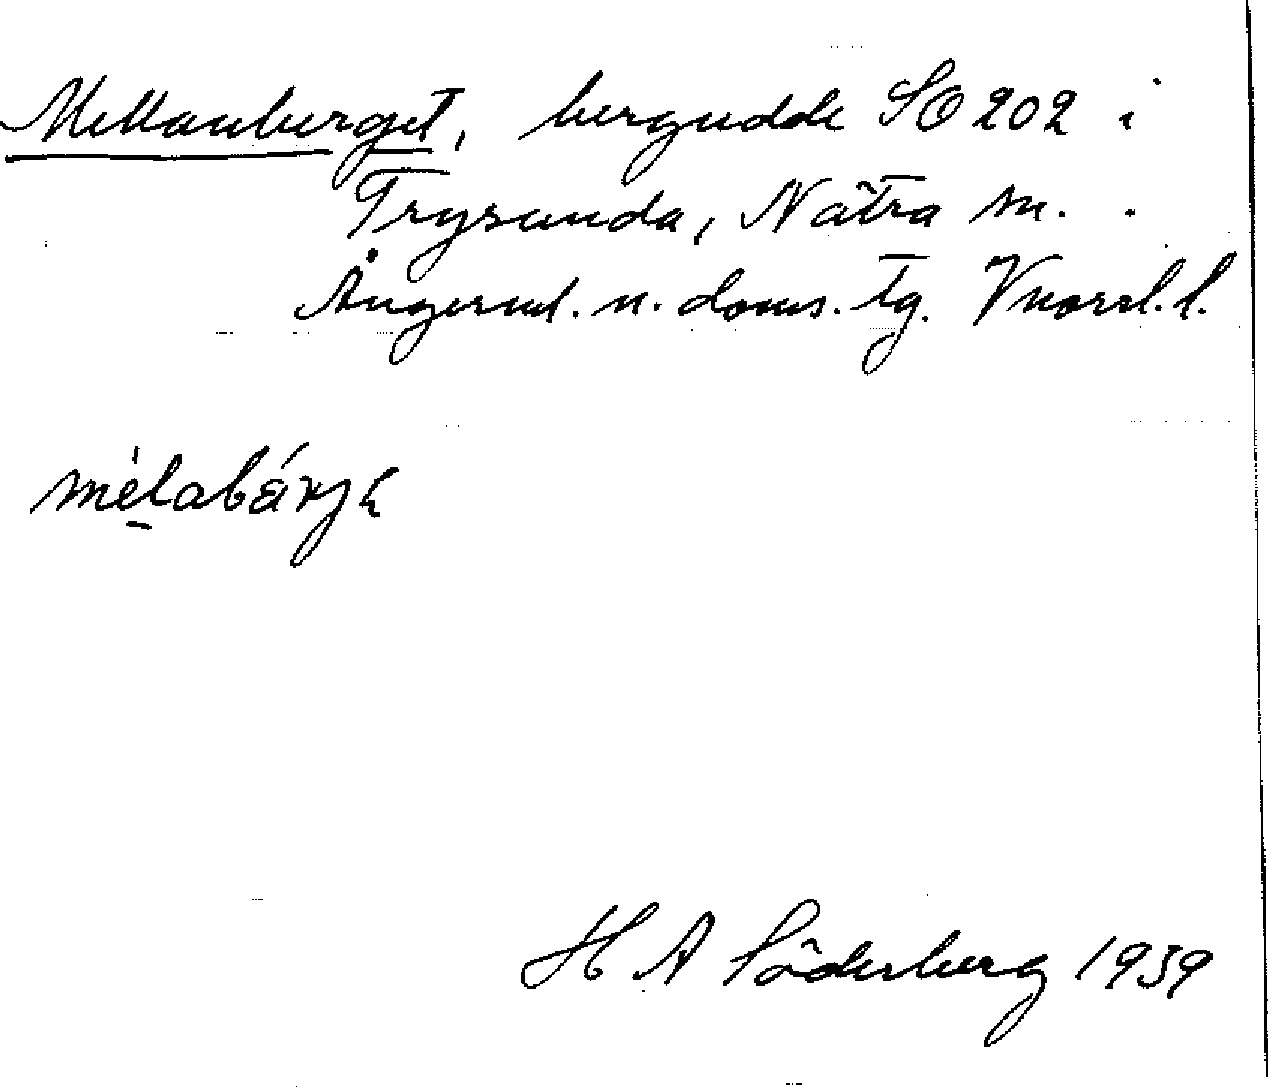 Mellanberget, bergudde SO 202 i
Trysunda, Nätra sn.
Ångerml. n. doms. tg. Vnorrl. l.
mèlabárjɛ
H A Söderberg 1939